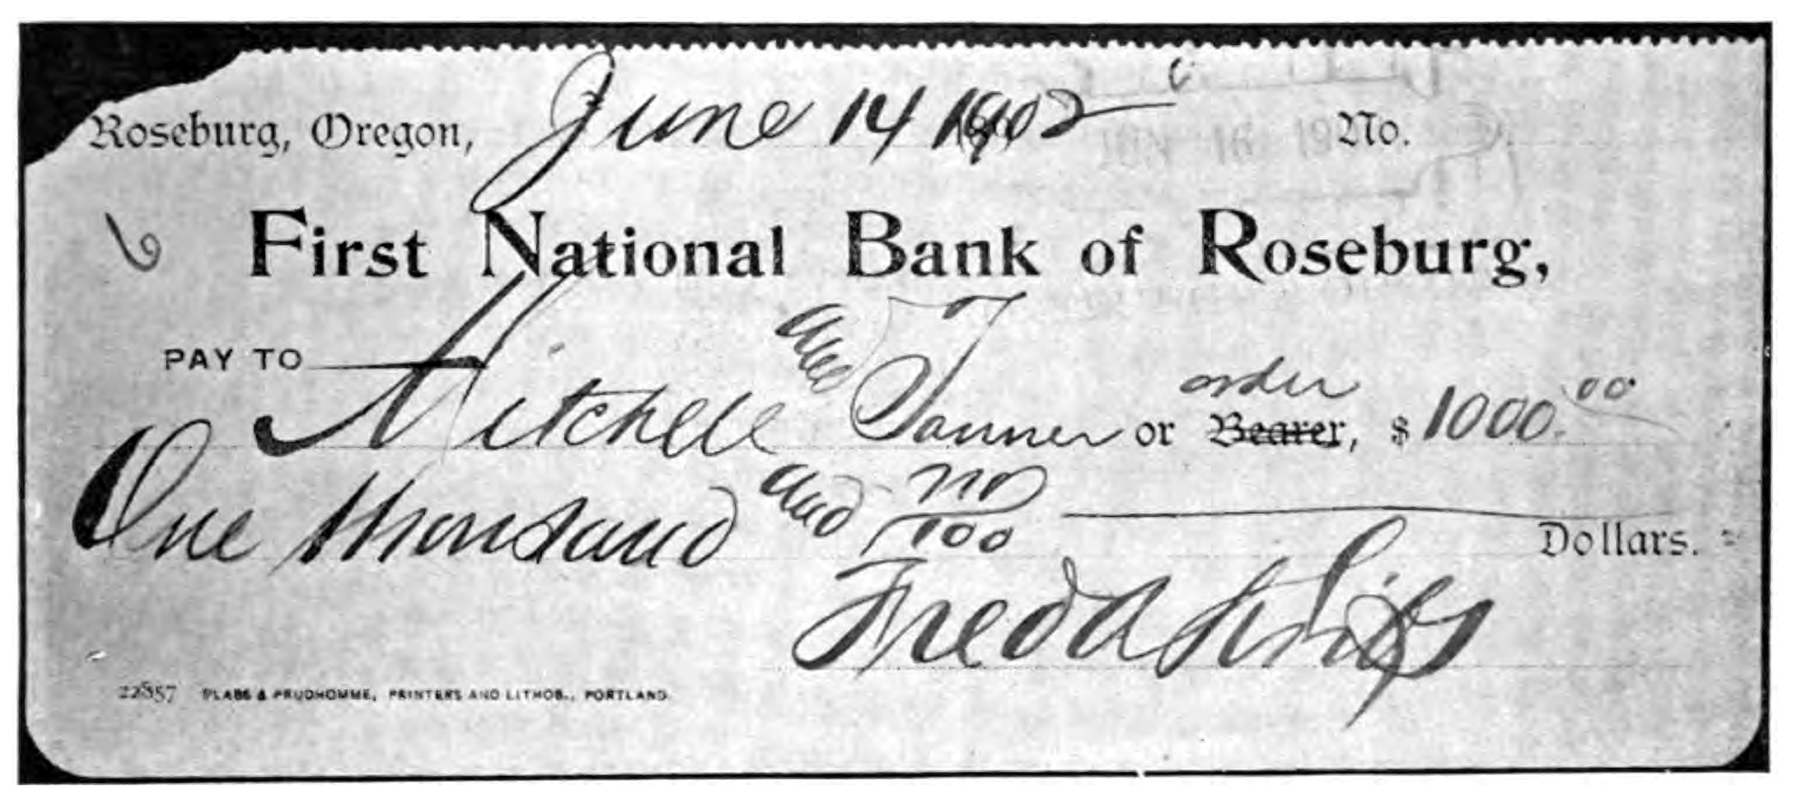 Roseburg, Oregon, June 14 1902 No.
JUN 16 19
6 First National Bank of Roseburg,
PAY TO Mitchell and Tanner or order Bearer, $1000.00
One thousand and no/100 Dollars.
Fred A Kribs
22857 BLABS & PRUDHOMME, PRINTERS AND LITHOS., PORTLAND.